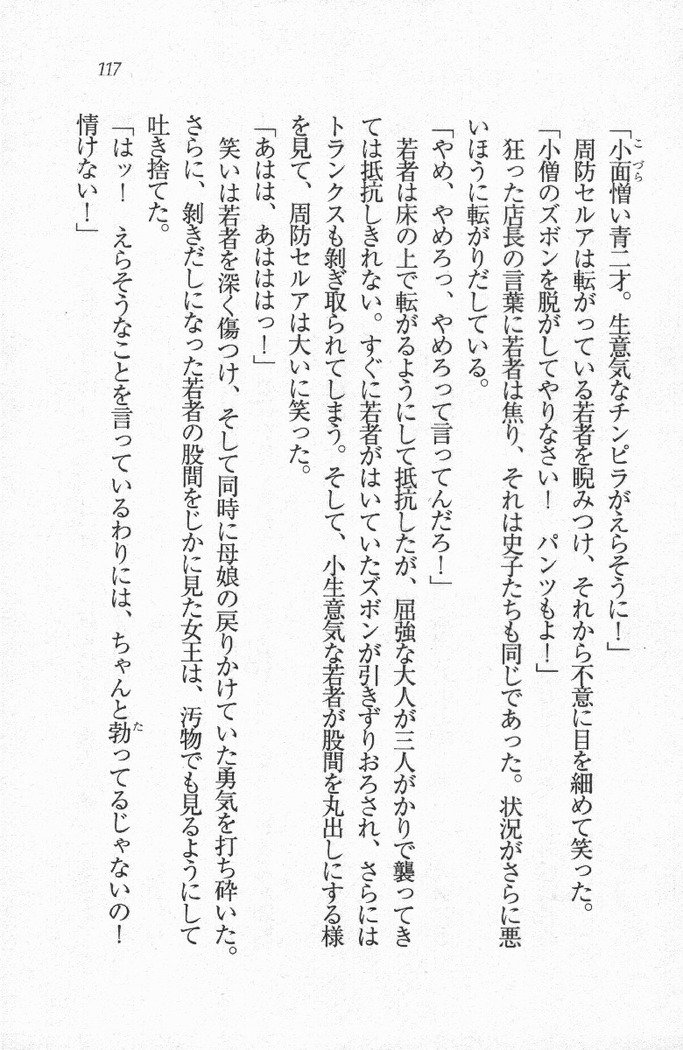 117
「小面憎い青二才。生意気なチンピラがえらそうに！」
周防セルアは転がっている若者を睨みつけ、それから不意に目を細めて笑った。
「小僧のズボンを脱がしてやりなさい！　パンツもよ！」
狂った店長の言葉に若者は焦り、それは史子たちも同じであった。状況がさらに悪
いほうに転がりだしている。
「やめ、やめろっ、やめろって言ってんだろ！」
若者は床の上で転がるようにして抵抗したが、屈強な大人が三人がかりで襲ってき
ては抵抗しきれない。すぐに若者がはいていたズボンが引きずりおろされ、さらには
トランクスも剝ぎ取られてしまう。そして、小生意気な若者が股間を丸出しにする様
を見て、周防セルアは大いに笑った。
「あはは、あはははっ！」
笑いは若者を深く傷つけ、そして同時に母娘の戻りかけていた勇気を打ち砕いた。
さらに、剝きだしになった若者の股間をじかに見た女王は、汚物でも見るようにして
吐き捨てた。
「はッ！　えらそうなことを言っているわりには、ちゃんと勃ってるじゃないの！
情けない！」